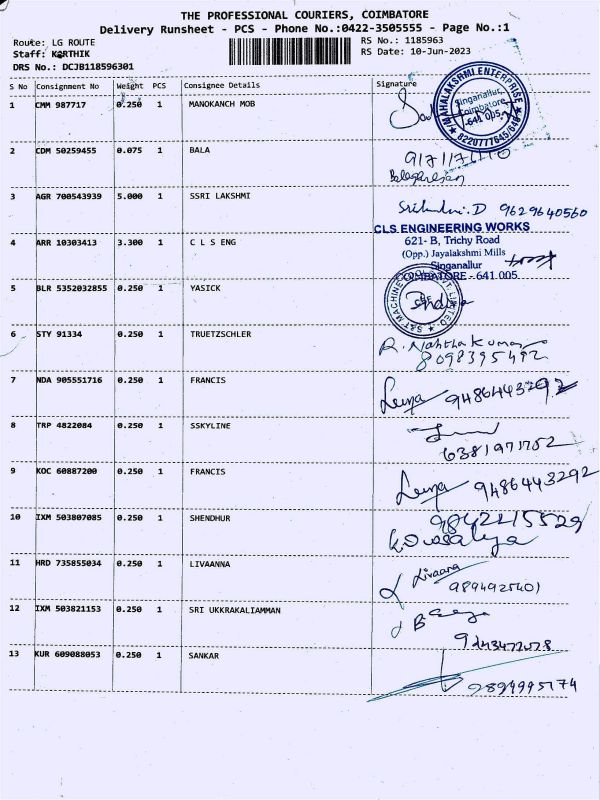 THE PROFESSIONAL COURIERS, COIMBATORE
Delivery Runsheet - PCS - Phone No.:0422-3505555 - Page No.:1
Route: LG ROUTE
RS No.: 1185963
Staff: KARTHIK
RS Date: 10-Jun-2023
DRS No.: DCJB118596301
S No Consignment No Weight PCS Consignee Details Signature
1 CMM 987717 0.250 1 MANOKANCH MOB
MAHALAKSHMI ENTERPRISE
Singanallur,
Coimbatore
641 005
2 CDM 50259455 0.075 1 BALA
3 AGR 700543939 5.000 1 SSRI LAKSHMI
9629640560
4 ARR 10303413 3.300 1 C L S ENG
CLS ENGINEERING WORKS
621- B, Trichy Road
(Opp.) Jayalakshmi Mills
Singanallur
COIMBATORE - 641 005.
5 BLR 5352032855 0.250 1 YASICK
6 STY 91334 0.250 1 TRUETZSCHLER
8098395492
7 NDA 905551716 0.250 1 FRANCIS
9486443292
8 TRP 4822084 0.250 1 SSKYLINE
6381971752
9 KOC 60887200 0.250 1 FRANCIS
9486443292
10 IXM 503807085 0.250 1 SHENDHUR
9842215529
Kowsalya
11 HRD 735855034 0.250 1 LIVAANNA
Livaana
9894925401
12 IXM 503821153 0.250 1 SRI UKKRAKALIAMMAN
13 KUR 609088053 0.250 1 SANKAR
9894995174